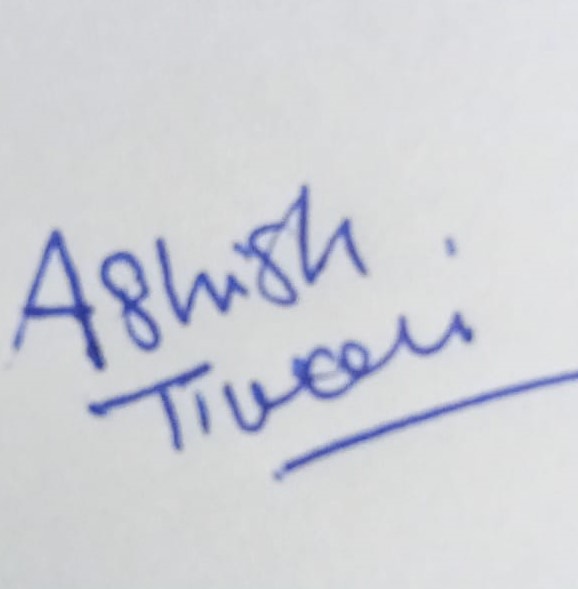 Ashish
Tiwari